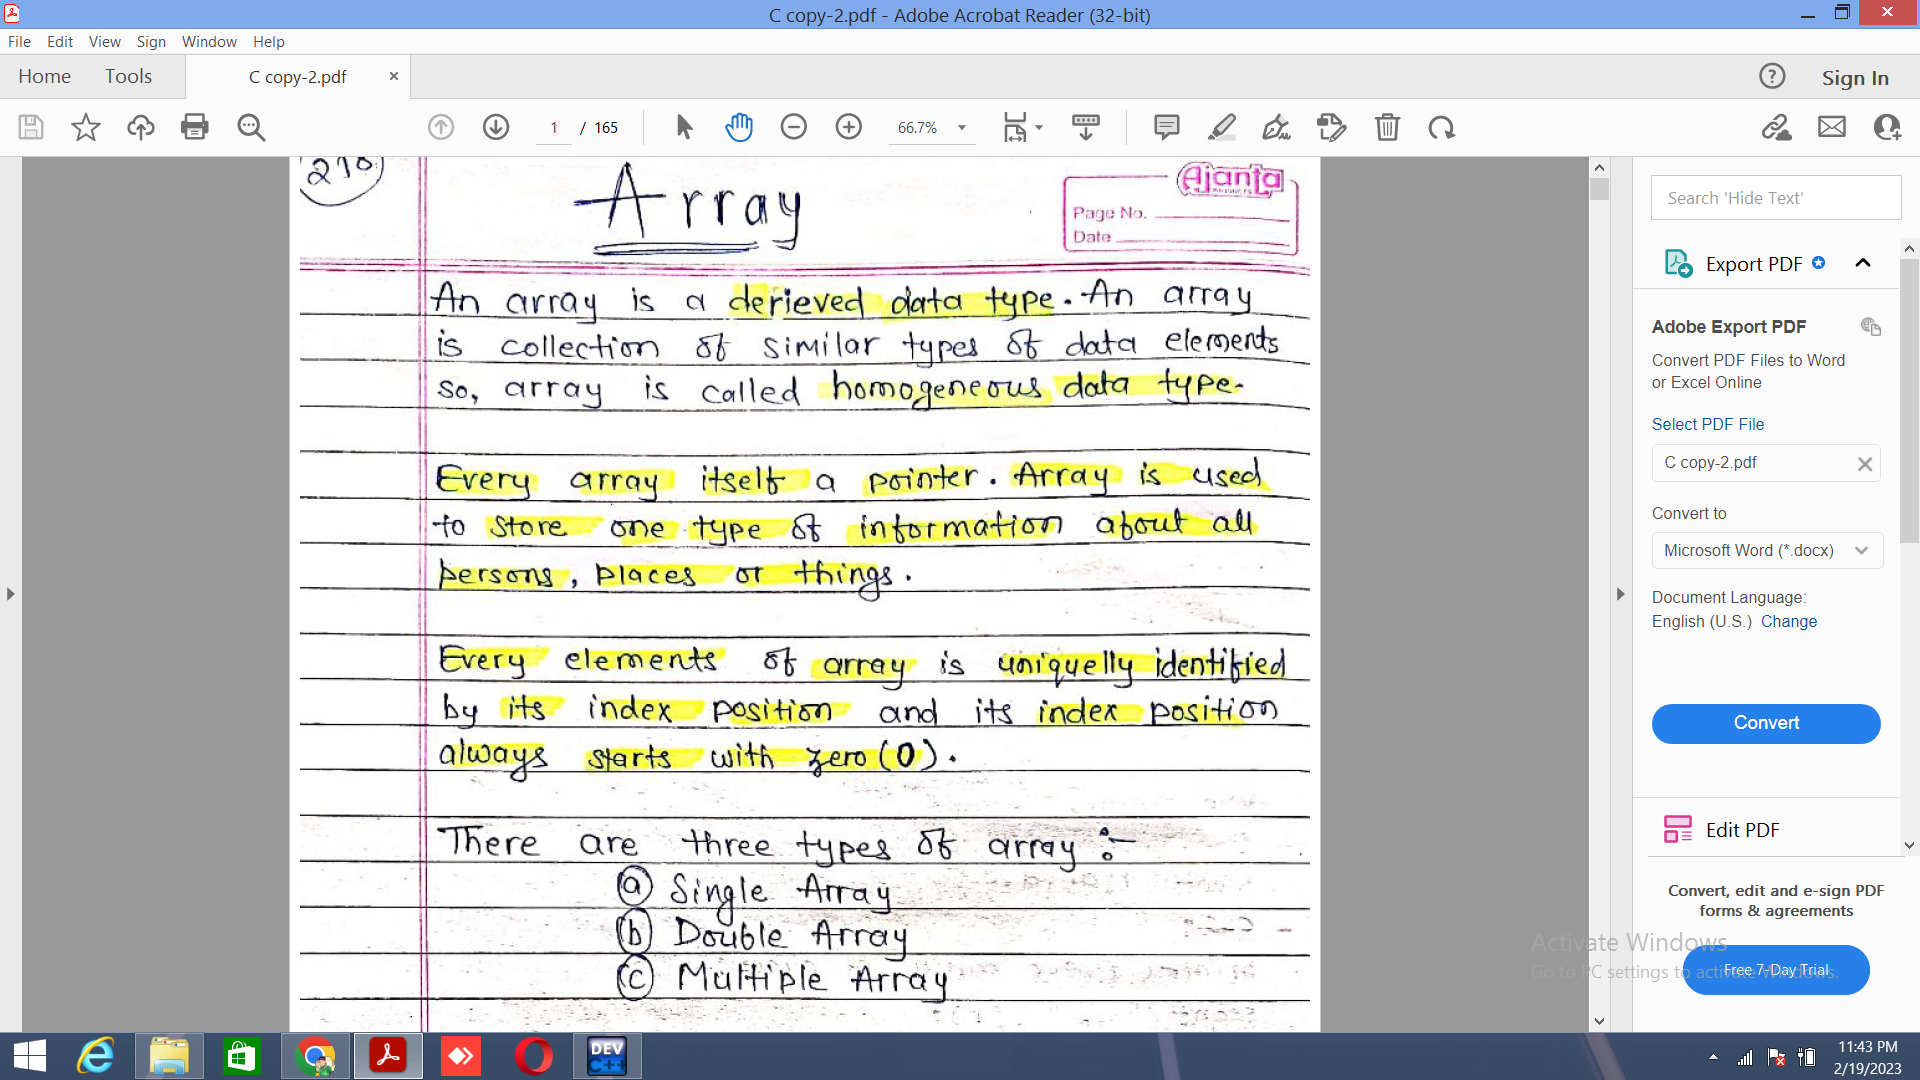 C copy-2.pdf - Adobe Acrobat Reader (32-bit)
File Edit View Sign Window Help
Home Tools C copy-2.pdf × Sign In
1 / 165 66.7%
Array
Ajanta
Page No.
Date
An array is a derieved data type. An array
is collection of similar types of data elements
so, array is called homogeneous data type.
Every array itself a pointer. Array is used
to store one type of information about all
persons, places or things.
Every elements of array is uniquelly identified
by its index position and its index position
always starts with zero (0).
There are three types of array :-
(a) Single Array
(b) Double Array
(c) Multiple Array
Search 'Hide Text'
Export PDF
Adobe Export PDF
Convert PDF Files to Word
or Excel Online
Select PDF File
C copy-2.pdf
Convert to
Microsoft Word (*.docx)
Document Language:
English (U.S.) Change
Convert
Edit PDF
Convert, edit and e-sign PDF
forms & agreements
Free 7-Day Trial
Activate Windows
Go to PC settings to activate Windows.
DEV
C++
11:43 PM
2/19/2023